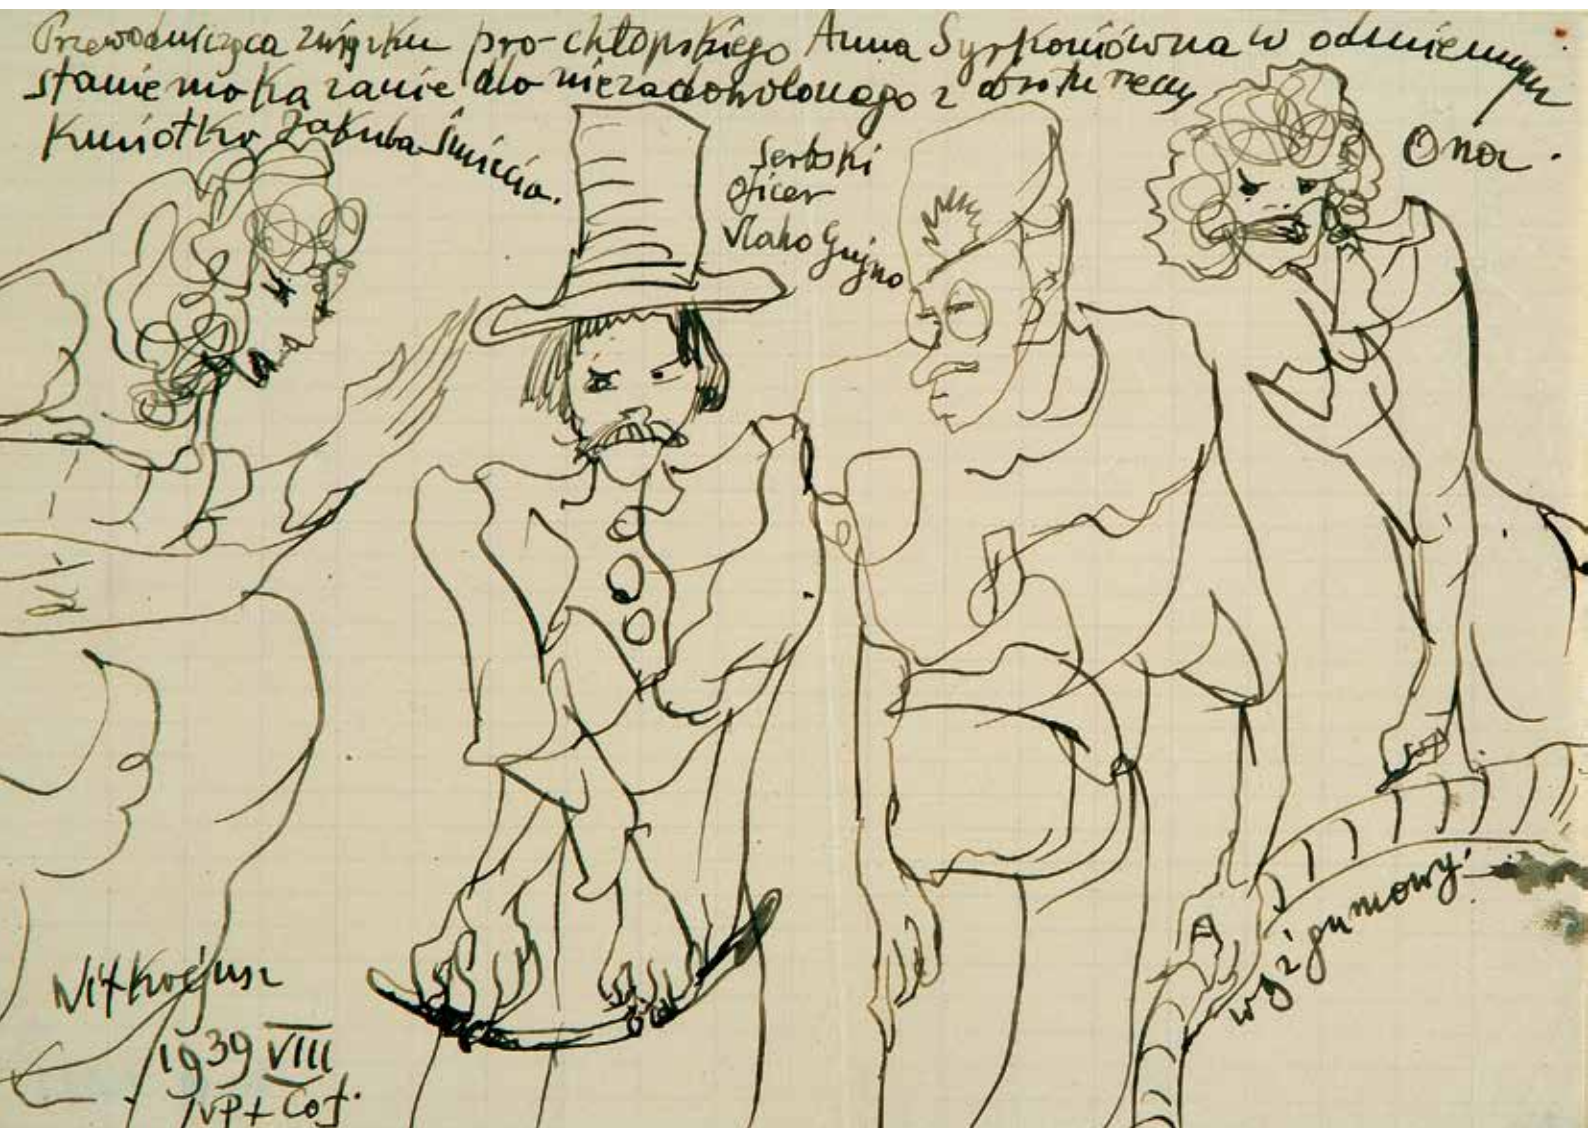 Przewodnicząca związku pro-chłopskiego Anna Syrkoniówna w odmiennym
stanie moka zanie dlo niezadowolonego z obrotu rzeczy
Kmiotka Jakuba Śmiecia.
Serbski
oficer
Vlaho Gujno
Ona.
wąż gumowy.
Witkacjusz
1939 VIII
NP + Cof.